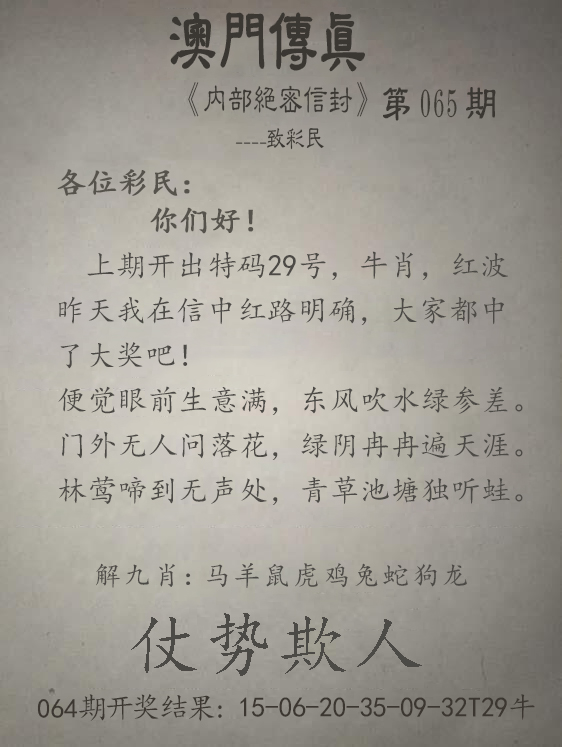 澳門傳眞
《内部絕密信封》第065期
----致彩民
各位彩民：
你们好！
上期开出特码29号，牛肖，红波
昨天我在信中红路明确，大家都中
了大奖吧！
便觉眼前生意满，东风吹水绿参差。
门外无人问落花，绿阴冉冉遍天涯。
林莺啼到无声处，青草池塘独听蛙。
解九肖：马羊鼠虎鸡兔蛇狗龙
仗势欺人
064期开奖结果：15-06-20-35-09-32T29牛